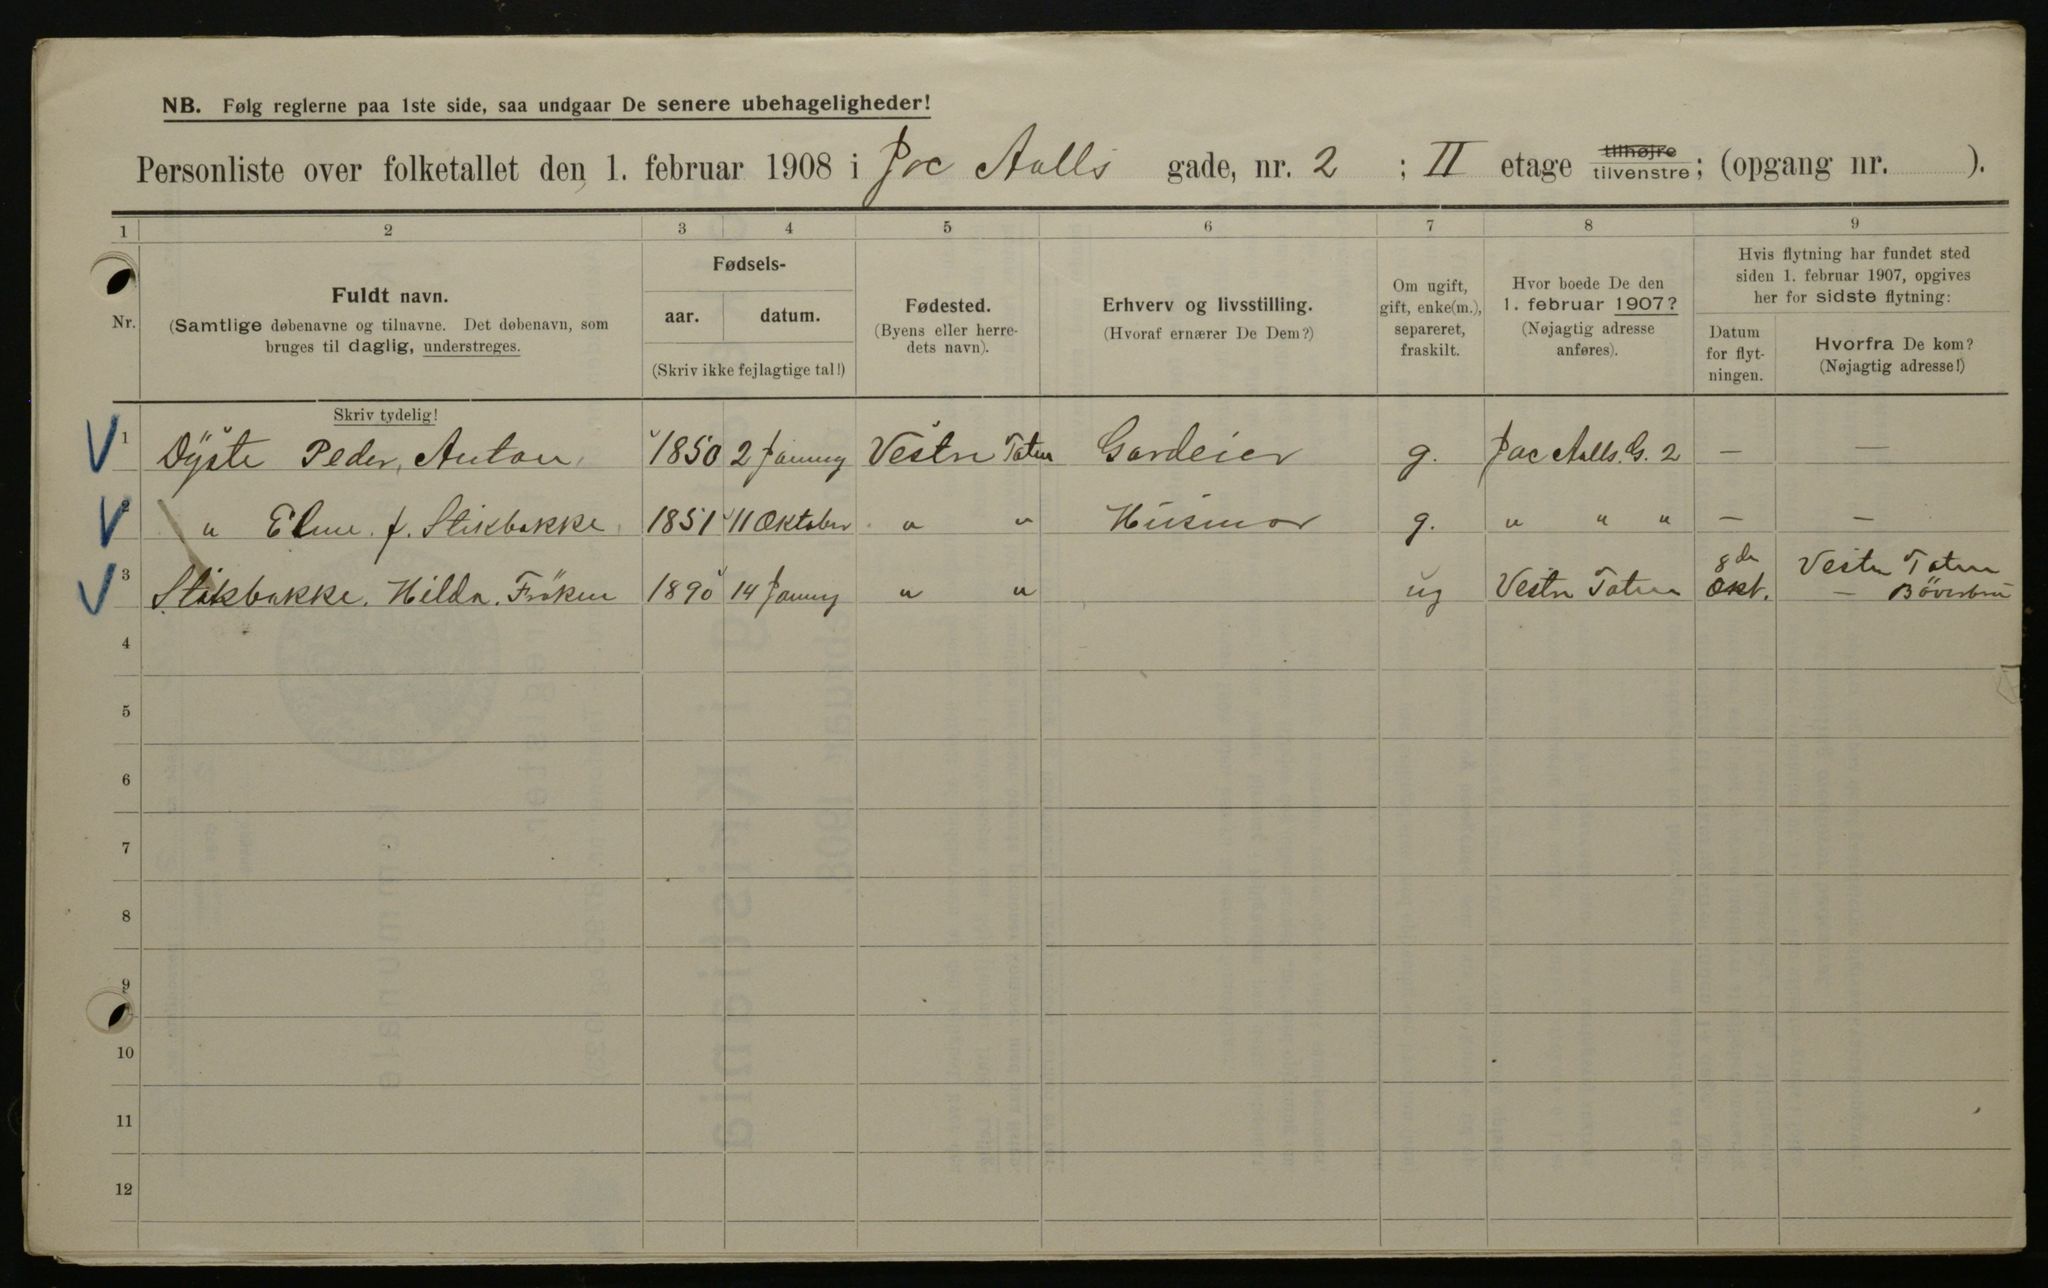 NB. Følg reglerne paa 1ste side, saa undgaar De senere ubehageligheder!
Personliste over folketallet den 1. februar 1908 i Jac Aalls gade, nr. 2 ; II etage tilhøjre tilvenstre; (opgang nr. ).
1 2 3 4 5 6 7 8 9
Nr.
Fuldt navn.
(Samtlige døbenavne og tilnavne. Det døbenavn, som
bruges til daglig, understreges.
Fødsels-
aar. datum.
(Skriv ikke fejlagtige tal!)
Fødested.
(Byens eller herre-
dets navn).
Erhverv og livsstilling.
(Hvoraf ernærer De Dem?)
Om ugift,
gift, enke(m.),
separeret,
fraskilt.
Hvor boede De den
1. februar 1907?
(Nøjagtig adresse
anføres).
Hvis flytning har fundet sted
siden 1. februar 1907, opgives
her for sidste flytning:
Datum
for flyt-
ningen.
Hvorfra De kom?
(Nøjagtig adresse!)
Skriv tydelig!
1 Dyste Peder, Anton, 1850 2 Januay Vestre Toten Gardeier g. Jac Aalls. G. 2 — —
2 " f. Stikbakke, 1851 11 Oktober " " Husmor g. " " " — —
3 Stikbakke. Hilda. Fröken 1890 14 Januay " " ug Vestre Toten 8de Okt. Vestre Toten
— Böverbru
4
5
6
7
8
9
10
11
12